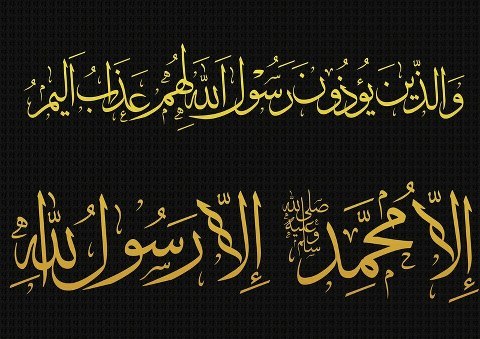 وَالَّذِينَ يُؤْذُونَ رَسُولَ اللَّهِ لَهُمْ عَذَابٌ أَلِيمٌ
إِلَّا مُحَمَّد صلى الله عليه وسلم إِلَّا رَسُولَ اللَّهِ